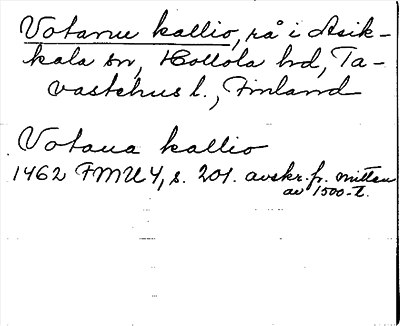 Votarnu kallio, rå i Asik-
kala sn, Hollola hd, Ta-
vastehus l., Finland
Votaua kallio
1462 FMU 4, s. 201. avskr. fr. mitten
av 1500-t.